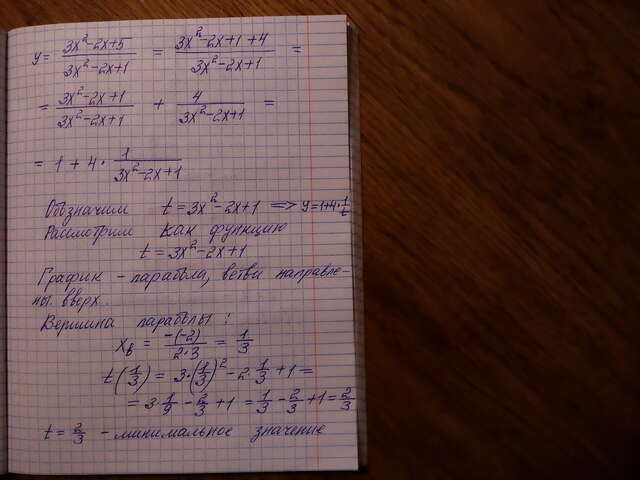 y = (3x²-2x+5)/(3x²-2x+1) = (3x²-2x+1+4)/(3x²-2x+1) =
= (3x²-2x+1)/(3x²-2x+1) + 4/(3x²-2x+1) =
= 1 + 4 · 1/(3x²-2x+1)
Обозначим t = 3x²-2x+1 => y = 1+4·1/t
Рассмотрим как функцию
t = 3x²-2x+1
График - парабола, ветви направле-
ны вверх.
Вершина параболы:
xв = -(-2)/(2·3) = 1/3
t(1/3) = 3·(1/3)² - 2·1/3 + 1 =
= 3·1/9 - 2/3 + 1 = 1/3 - 2/3 + 1 = 2/3
t = 2/3 - минимальное значение